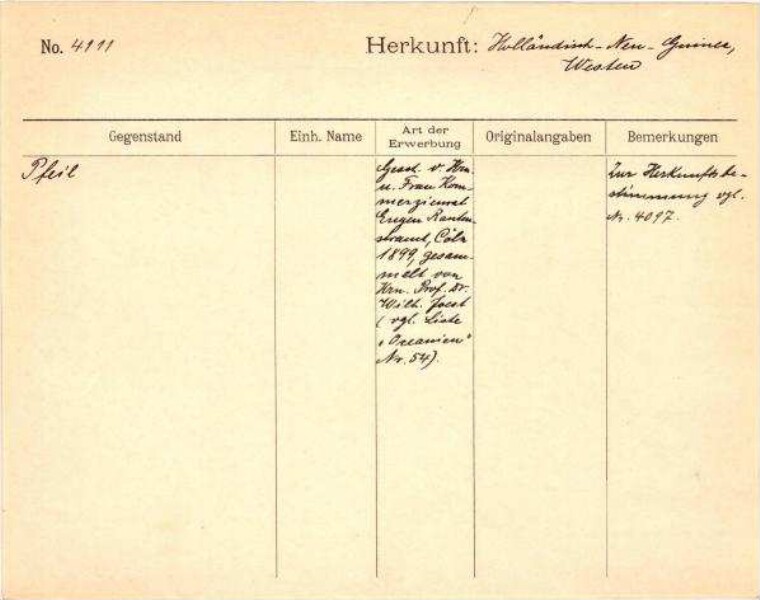 No. 4111
Herkunft: Holländisch-Neu-Guinea,
Westen
Gegenstand
Einh. Name
Art der
Erwerbung
Originalangaben
Bemerkungen
Pfeil
Gesch. v. Hrn.
u. Frau Kom-
merzienrat
Eugen Rauten-
strauch, Cöln
1899, gesam-
melt von
Hrn. Prof. Dr.
Wilh. Joest
(vgl. Liste
„Oceanien“
Nr. 54).
Zur Herkunftsbe-
stimmung vgl.
Nr. 4097.